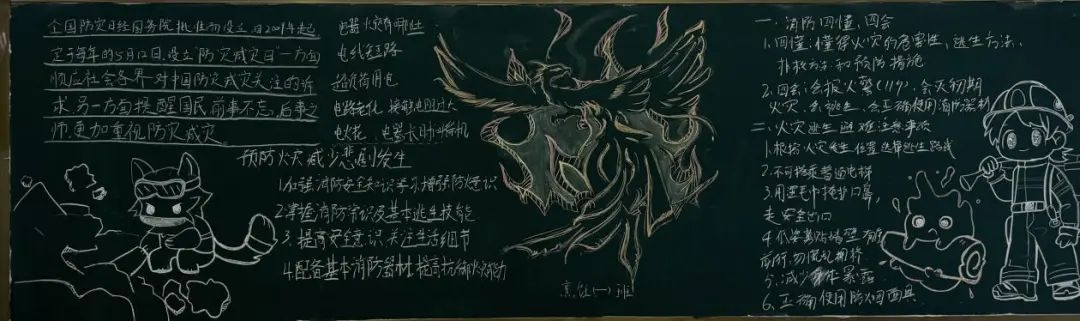 全国防灾日经国务院批准而设立,自2009年起
定于每年的5月12日,设立"防灾减灾日"一方面
顺应社会各界对中国防灾减灾关注的诉
求,另一方面提醒国民前事不忘,后事之
师,更加重视防灾减灾
电器火灾有哪些
电线短路
超负荷用电
电路老化、接触电阻过大
电火花、电器长时间待机
预防火灾减少悲剧发生
1.加强消防安全知识学习增强防火意识
2.掌握消防常识及基本逃生技能
3.提高安全意识关注生活细节
4.配备基本消防器材,提高抗御火灾能力
(一)班
一、消防四懂、四会
1.四懂:懂得火灾的危害性、逃生方法、
扑救方法和预防措施
2.四会:会报火警(119)、会灭初期
火灾、会逃生、会正确使用消防器材
二、火灾逃生避难注意事项
1.根据火灾发生位置选择逃生路线
2.不可搭乘普通电梯
3.用湿毛巾掩护口鼻,
走安全出口
4.低姿势沿墙壁
勿慌乱拥挤
5.减少 暴露
6.正确使用防烟面具